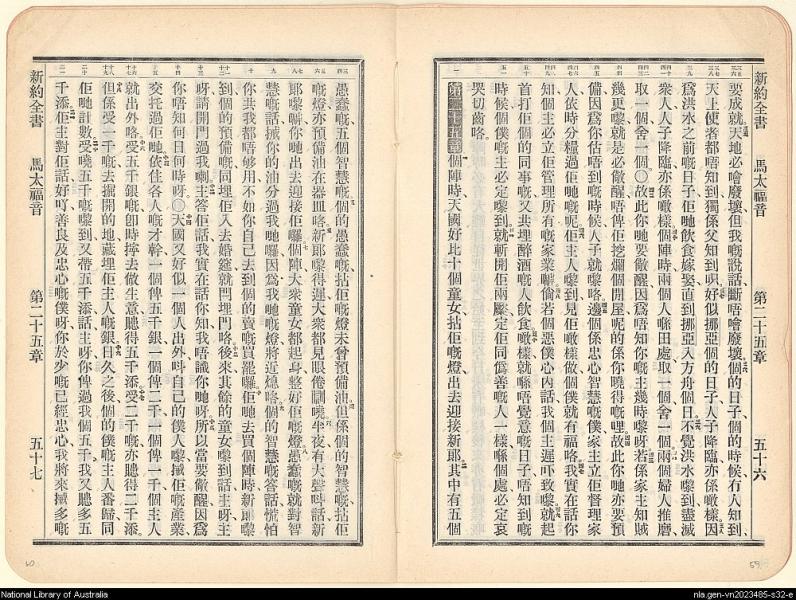 新約全書 馬太福音 第二十五章 五十六
要成就天地必噲廢壞但我嘅說話斷唔噲廢壞個的日子個的時候有人知到
天上使者都唔知到獨係父知到呮好似挪亞個的日子人子降臨亦係噉樣因
爲洪水之前嘅日子佢哋飲食嫁娶直到挪亞入方舟個日不覺洪水嚟到盡滅
衆人人子降臨亦係噉樣個陣時兩個人喺田處取一個舍一個兩個婦人推磨
取一個舍一個〇故此你哋要儆醒因爲唔知你嘅主幾時嚟呀若係家主知賊
幾更嚟就是必儆醒唔俾佢挖爛個間屋呢的係你曉得嘅哩故此你哋亦要預
備因爲你估唔到嘅時候人子就嚟咯邊個係忠心智慧嘅僕家主立佢督理家
人依時分糧過佢哋嘅呢佢主人嚟到見佢噉樣做個僕就有福咯我實在話你
知個主必立佢管理所有嘅家業嚹倘若個惡僕心內話我個主遲吓致嚟就起
首打佢個的同事嘅又共埋醉酒嘅人飲食噉樣就喺唔覺意嘅日子唔知到嘅
時候個僕嘅主必定嚟到就斬開佢兩壓定佢同僞善嘅人一樣喺個處必定哀
哭切齒咯
第二十五章 個陣時天國好比十個童女拈佢嘅燈出去迎接新郎其中有五個
愚蠢嘅五個智慧嘅個的愚蠢嘅拈佢嘅燈未曾預備油但係個的智慧嘅拈佢
嘅燈亦預備油在器皿咯新郎嚟得遲大衆都見眼倦瞓曉半夜有大聲呌話新
郎嚟嚹你哋出去迎接佢囉個陣大衆童女都起身整好佢嘅燈愚蠢嘅就對智
慧嘅話㨢你的油分過我哋囉因爲我哋嘅燈將近熄咯個的智慧嘅答話慌怕
你共我都唔够用不如你自己去到個的賣嘅買罷囉佢哋去買個陣時新郎嚟
到個的預備嘅同埋佢入去婚筵就閂埋門咯後來其餘的童女嚟到話主呀主
呀請開門過我喇主答佢話我實在話你知我唔識你哋呀所以當要儆醒因爲
你唔知何日何時呀〇天國又好似一個人出外呌自己的僕人嚟㨢佢嘅產業
交托過佢哋依住各人嘅才幹一個俾五千銀一個俾二千一個俾一千個主人
就出外咯受五千銀嘅卽時擰去做生意賺得五千添受二千嘅亦賺得二千添
但係受一千嘅去擺開的地藏埋佢主人嘅銀日久之後個的僕嘅主人番歸同
佢哋計數受曉五千嘅嚟到又帶五千添話主呀你俾過我個五千我又賺多五
千添佢主對佢話好吖善良及忠心嘅僕呀你於少嘅已經忠心我將來㨢多嘅
新約全書 馬太福音 第二十五章 五十七
60
59
National Library of Australia
nla.gen-vn2023485-s32-e